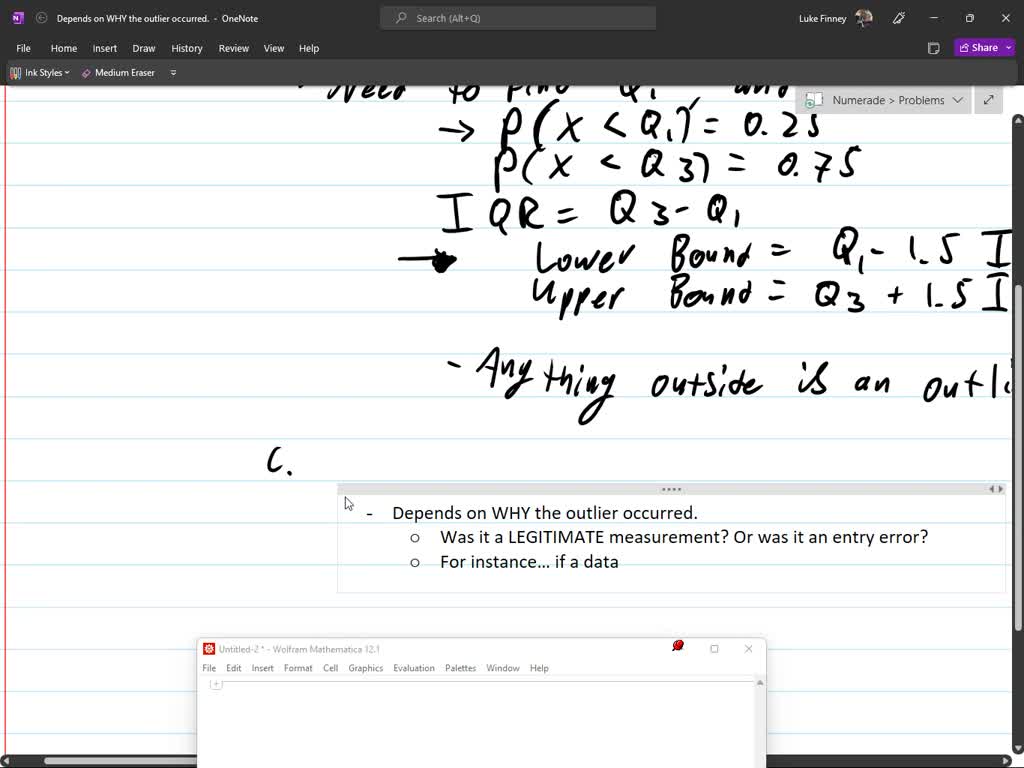 Depends on WHY the outlier occurred. - OneNote
Search (Alt+Q)
Luke Finney
File Home Insert Draw History Review View Help
Share
Ink Styles
Medium Eraser
Numerade > Problems
Need to find Q1 and
→ P(X < Q1) = 0.25
P(X < Q3) = 0.75
IQR = Q3 - Q1
→ Lower Bound = Q1 - 1.5 I
Upper Bound = Q3 + 1.5 I
- Anything outside is an outli
C.
- Depends on WHY the outlier occurred.
o Was it a LEGITIMATE measurement? Or was it an entry error?
o For instance... if a data
Untitled-2 * - Wolfram Mathematica 12.1
File Edit Insert Format Cell Graphics Evaluation Palettes Window Help